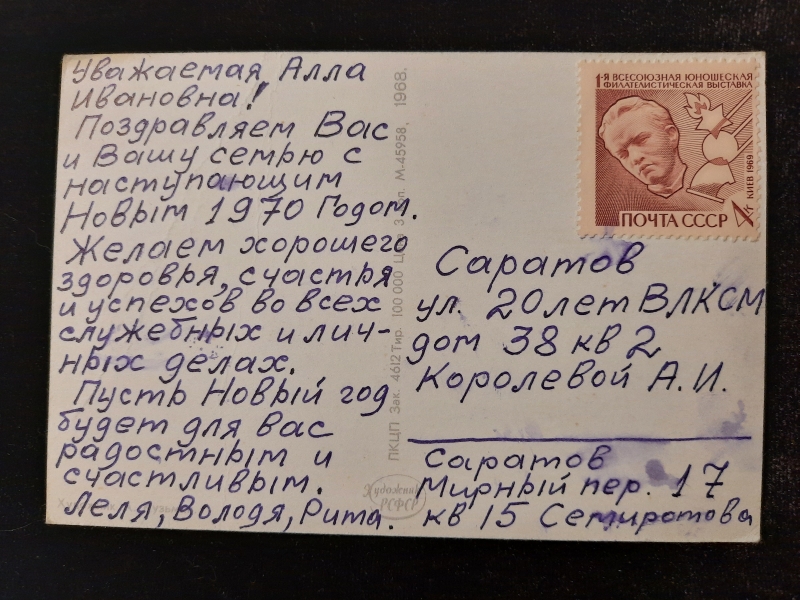 Уважаемая Алла
Ивановна!
Поздравляем Вас
и Вашу семью с
наступающим
Новым 1970 Годом.
Желаем хорошего
здоровья, счастья
и успехов во всех
служебных и лич-
ных делах.
Пусть Новый год
будет для вас
радостным и
счастливым.
Леля, Володя, Рита.
ПКЦП Зак. 4612 Тир. 100 000 М-45958. 1968.
Художник
РСФСР
1-Я ВСЕСОЮЗНАЯ ЮНОШЕСКАЯ
ФИЛАТЕЛИСТИЧЕСКАЯ ВЫСТАВКА
КИЕВ 1969
ПОЧТА СССР 4к
Саратов
ул. 20 лет ВЛКСМ
дом 38 кв 2
Королевой А.И.
Саратов
Мирный пер. 17
кв 15 Семиротова